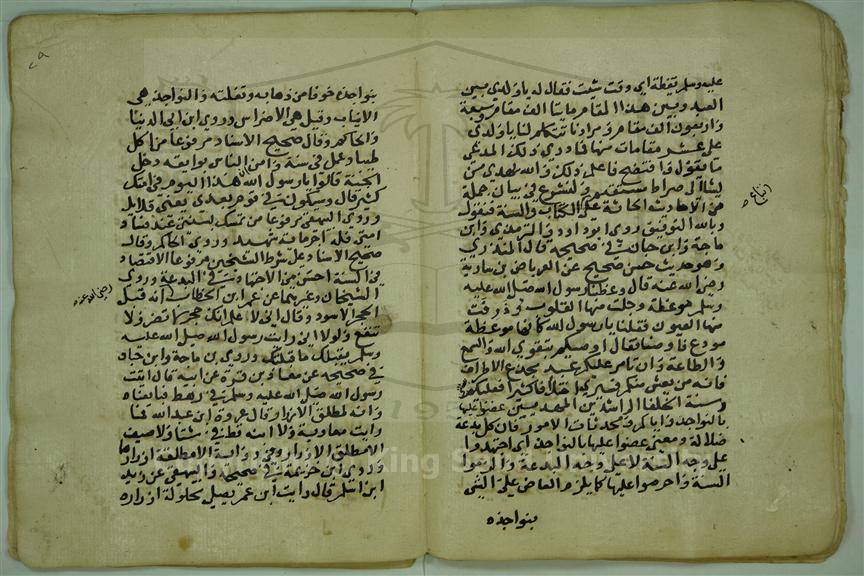 عليه وسلم يقظة اي وقت شئت فقال له ياولدي بين
العبد وبين هذا المقام مايتا الف مقام وسبعة
واربعون الف مقام ومرادنا تتكلم لنا ياولدي
على عشر مقامات منها فما دري ذلك المدعي
ما يقول فافتضح فاعلم ذلك والله يهدي من
يشآ الى صراط مستقيم ولنشرع في بيان جملة
من الاحاديث الحاثة على الكتاب والسنة فنقول
وبالله التوفيق روى ابو داود والترمذي وابن
ماجة وابن حبان في صحيحه قال الترمذي
وهو حديث حسن صحيح عن العرباض بن سارية
رضي الله عنه قال وعظنا رسول الله صلى الله عليه
وسلم موعظة وجلت منها القلوب وذرفت
منها العيون فقلنا يارسول الله كأنها موعظة
مودع فاوصنا فقال اوصيكم بتقوي الله والسمع
والطاعة وان تامر عليكم عبد مجدع الاطراف
فانه من يعش منكم فسيري اختلافا كثيرا فعليكم
وسنة الخلفا الراشدين المهديين عضوا عليها
بالنواجذ واياكم ومحدثات الامور فان كل بدعة
ضلالة ومعنى عضوا عليها بالنواجذ اي اجتهدوا
على وجه السنة لا على وجه البدعة والزموا
السنة واحرصوا عليها كما يلزم العاض على الشي
بنواجذه
بنواجذه خوفا من ذهابه وتفلته والنواجذ هي
الانياب وقيل هي الاضراس وروي ابن ابي الدنيا
والحاكم وقال صحيح الاسناد مرفوعا من اكل
طيبا وعمل في سنة وامن الناس بوايقه دخل
الجنة قالوا يارسول الله ان هذا اليوم في امتك
كثير قال وسيكون في قوم بعدي يعني قلايل
وروي البيهقي مرفوعا من تمسك بسنتي عند فساد
امتي فله اجر مائة شهيد وروي الحاكم وقال
صحيح الاسناد على شرط الشيخين مرفوعا الاقتصاد
في السنة احسن من الاجتهاد في البدعة وروي
الشيخان وغيرهما عن عمر ابن الخطاب انه قبل
رضي الله عنه
الحجر الاسود وقال اني لا علم انك حجر لا تضر ولا
تنفع ولولا اني رايت رسول الله صلى الله عليه
وسلم يقبلك ما قبلتك وروي بن ماجة وابن حبان
في صحيحه عن معاوية بن قرة عن ابيه قال اتيت
رسول الله صلى الله عليه وسلم في رهط فبايعناه
وانه لمطلق الازرار قال عروة ابن عبد الله فما
رايت معاوية ولا ابنه قط في شتا ولا صيف
الا مطلق الازرار وفي رواية الا مطلقة ازرارهما
وروي ابن خزيمة في صحيحه والبيهقي عن زيد
ابن اسلم قال رايت ابن عمر يصلي محلولة ازراره